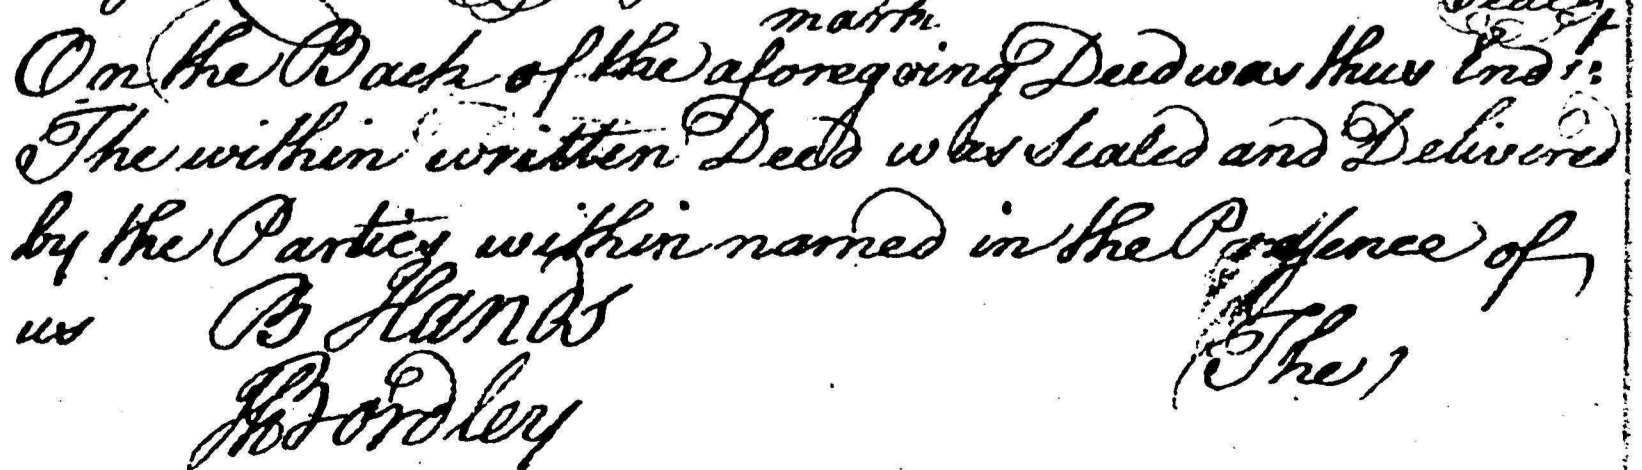 mark
On the Back of the aforegoing Deed was thus End:
The within written Deed was Sealed and Delivered
by the Parties within named in the Presence of
us B Hands The
Bordley